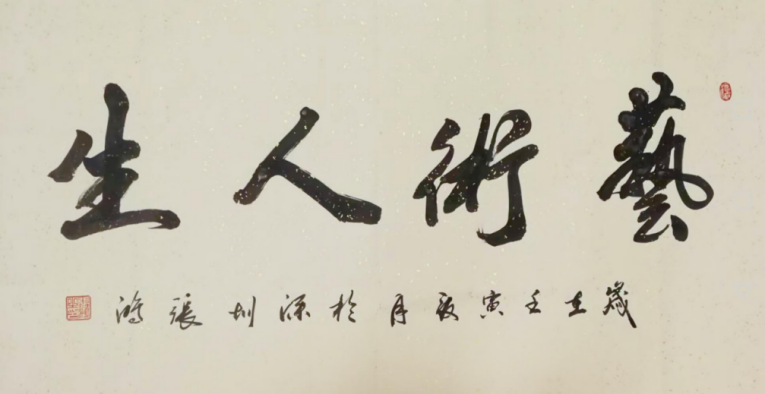 藝術人生
歲在壬寅夏月於深圳張鴻